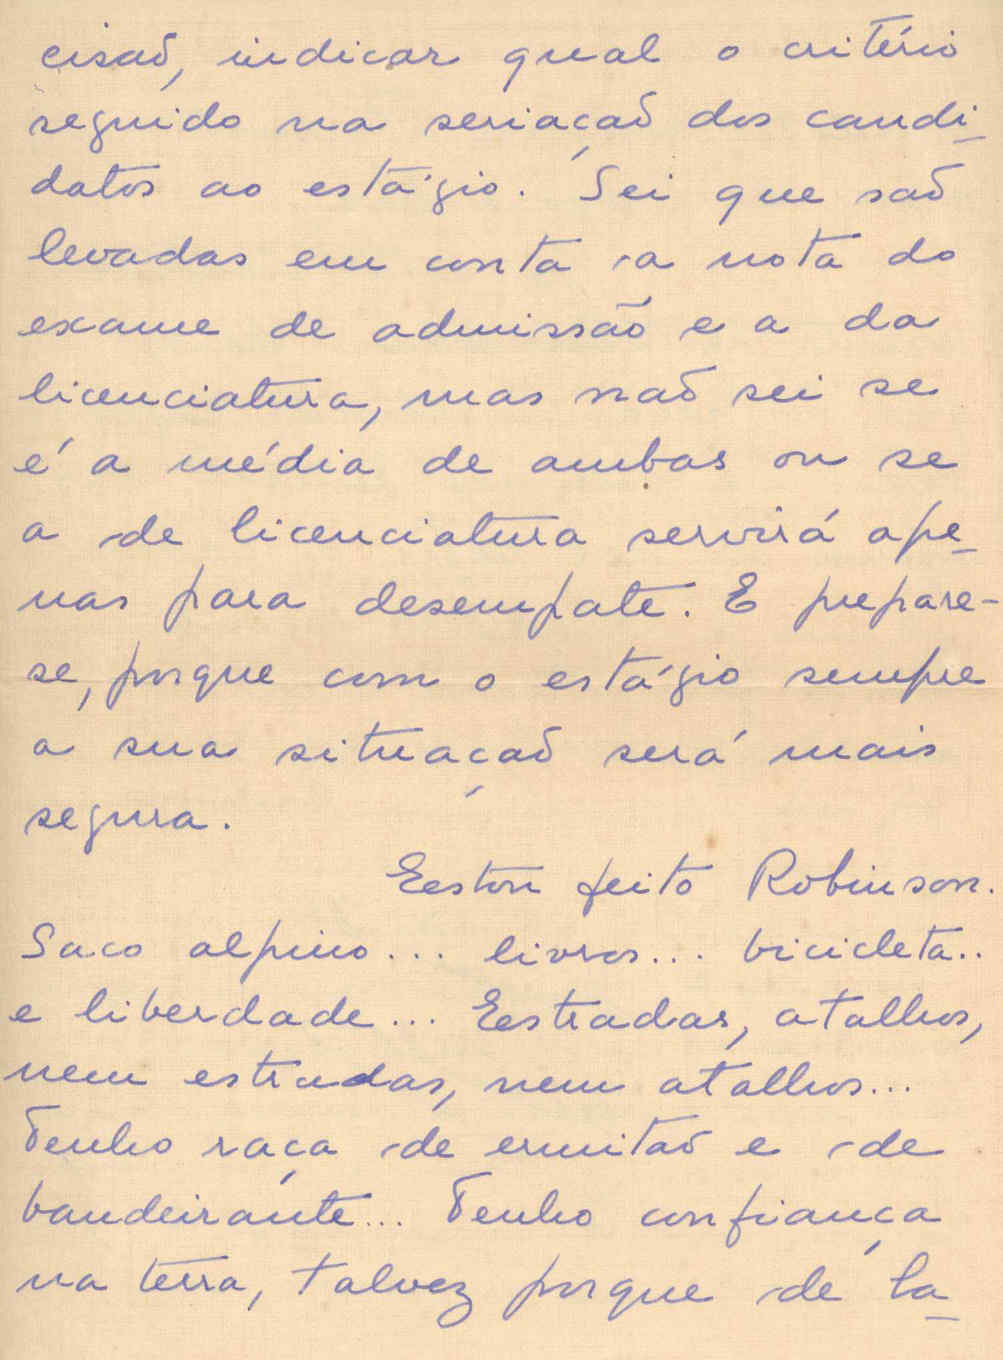 cisaõ, indicar qual o critério
seguido na seriaçaõ dos candi-
datos ao estágio. Sei que saõ
levadas em conta a nota do
exame de admissão e a da
licenciatura, mas naõ sei se
é a média de ambas ou se
a de licenciatura servirá ape-
nas para desempate. E prepare-
se, porque com o estágio sempre
a sua situaçaõ será mais
segura.
Estou feito Robinson.
Saco alpino... livros... bicicleta..
e liberdade... Estradas, atalhos,
nem estradas, nem atalhos...
Tenho raça de ermitaõ e de
bandeirante... Tenho confiança
na terra, talvez porque de la-